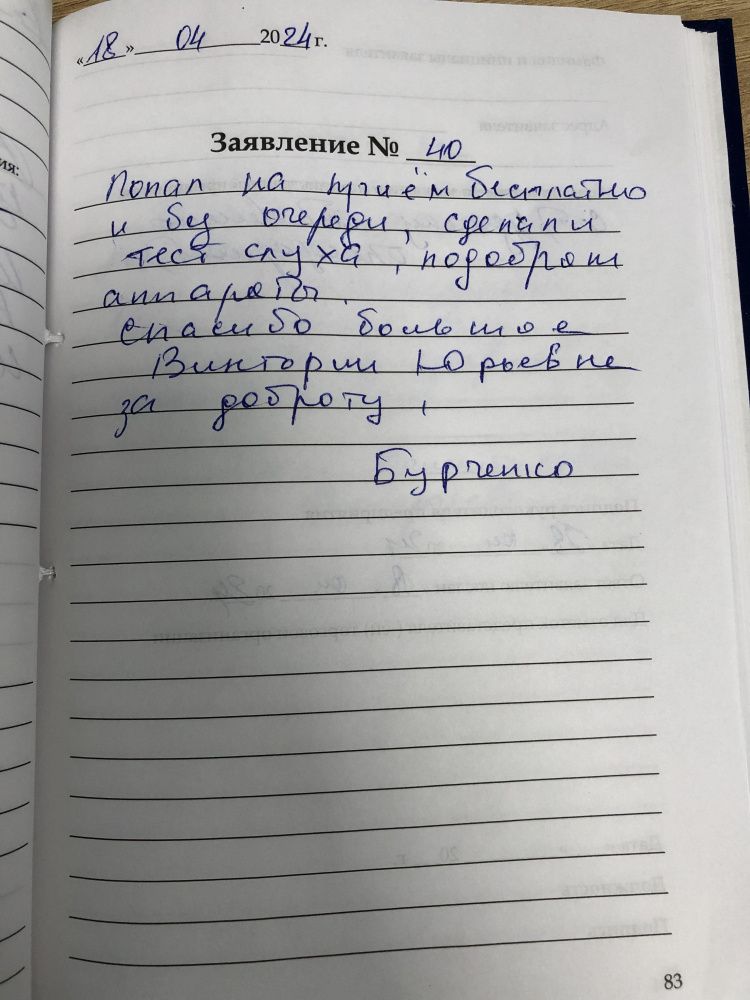 «18» 04 2024 г.
Заявление № 40
Попал на приём бесплатно
и без очереди, сделали
тест слуха, подобрали
аппараты.
Спасибо большое
Виктории Юрьевне
за доброту.
Бурченко
83